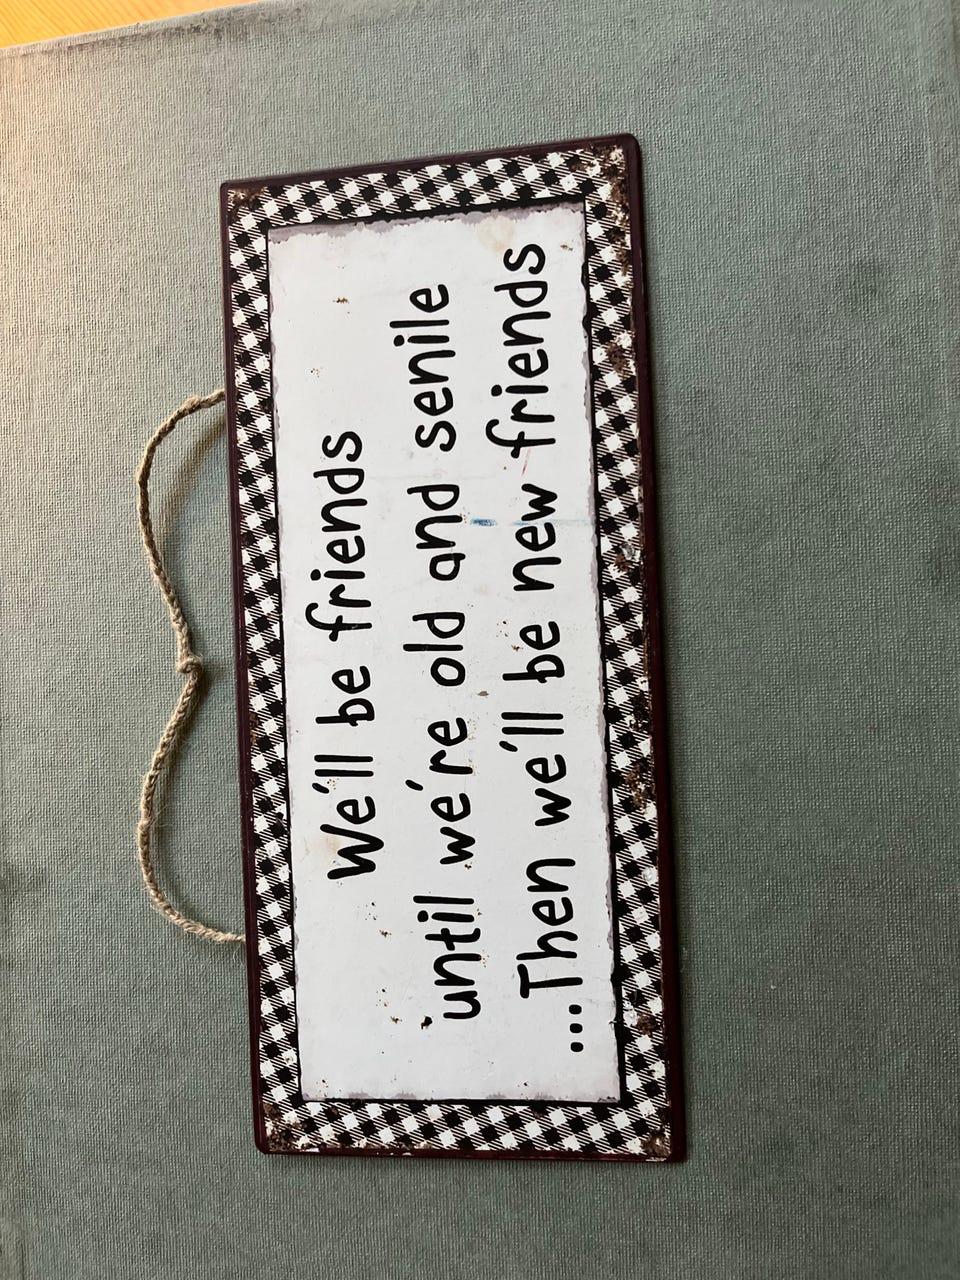 We'll be friends
until we're old and senile
...Then we'll be new friends